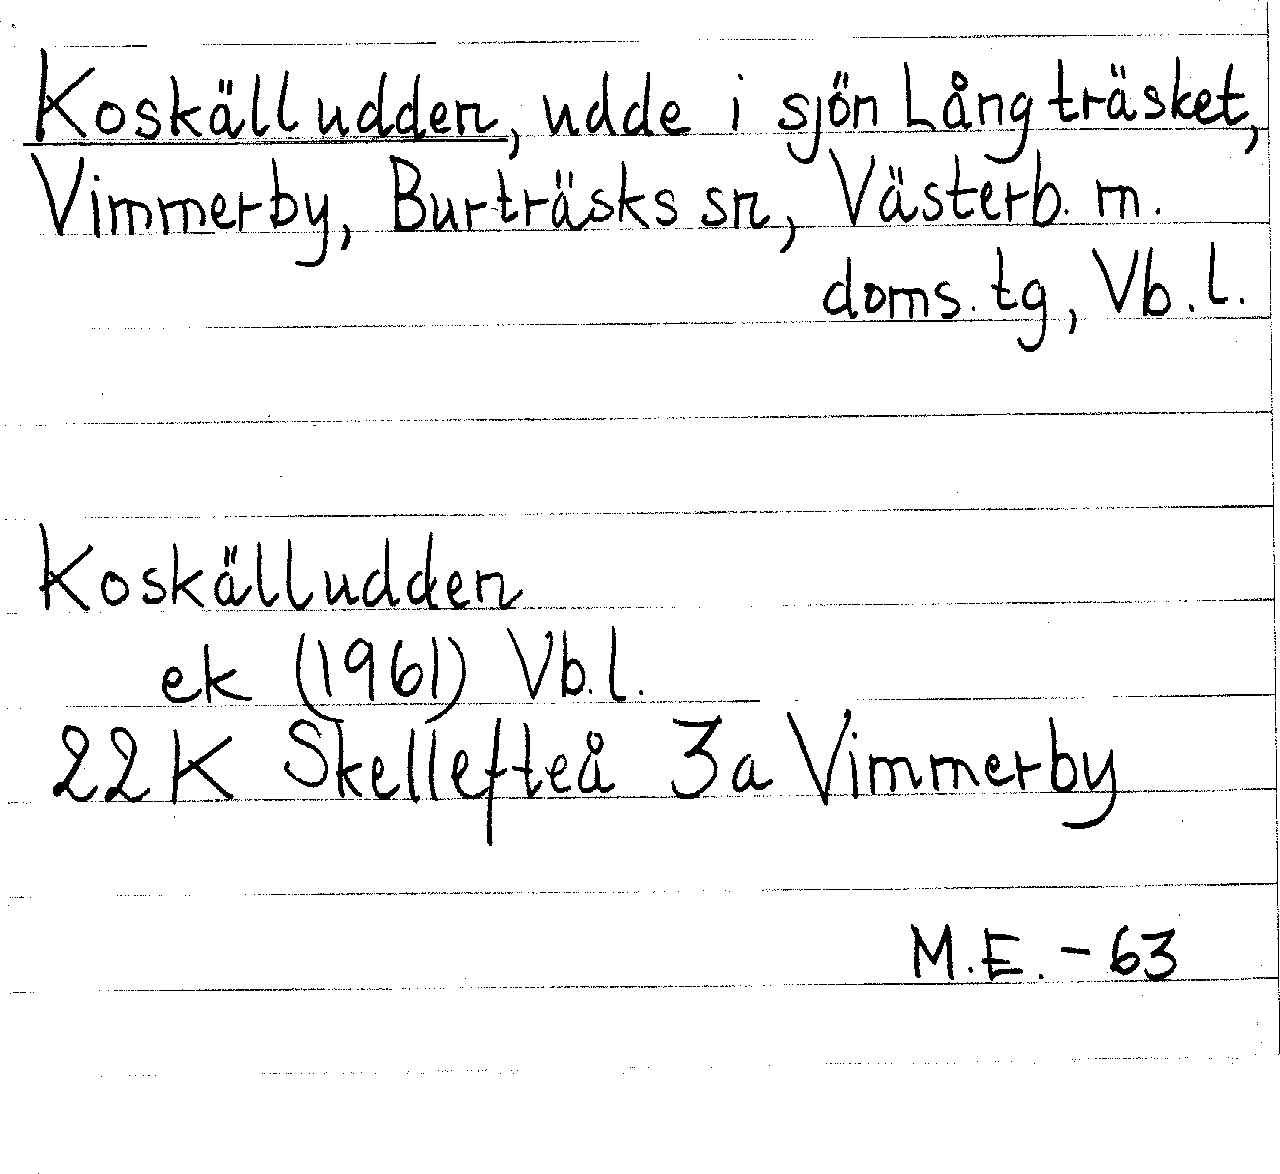 Koskälludden, udde i sjön Långträsket,
Vimmerby, Burträsks sn, Västerb. m.
doms. tg, Vb. l.
Koskälludden
ek (1961) Vb. l.
22K Skellefteå 3a Vimmerby
M.E. - 63